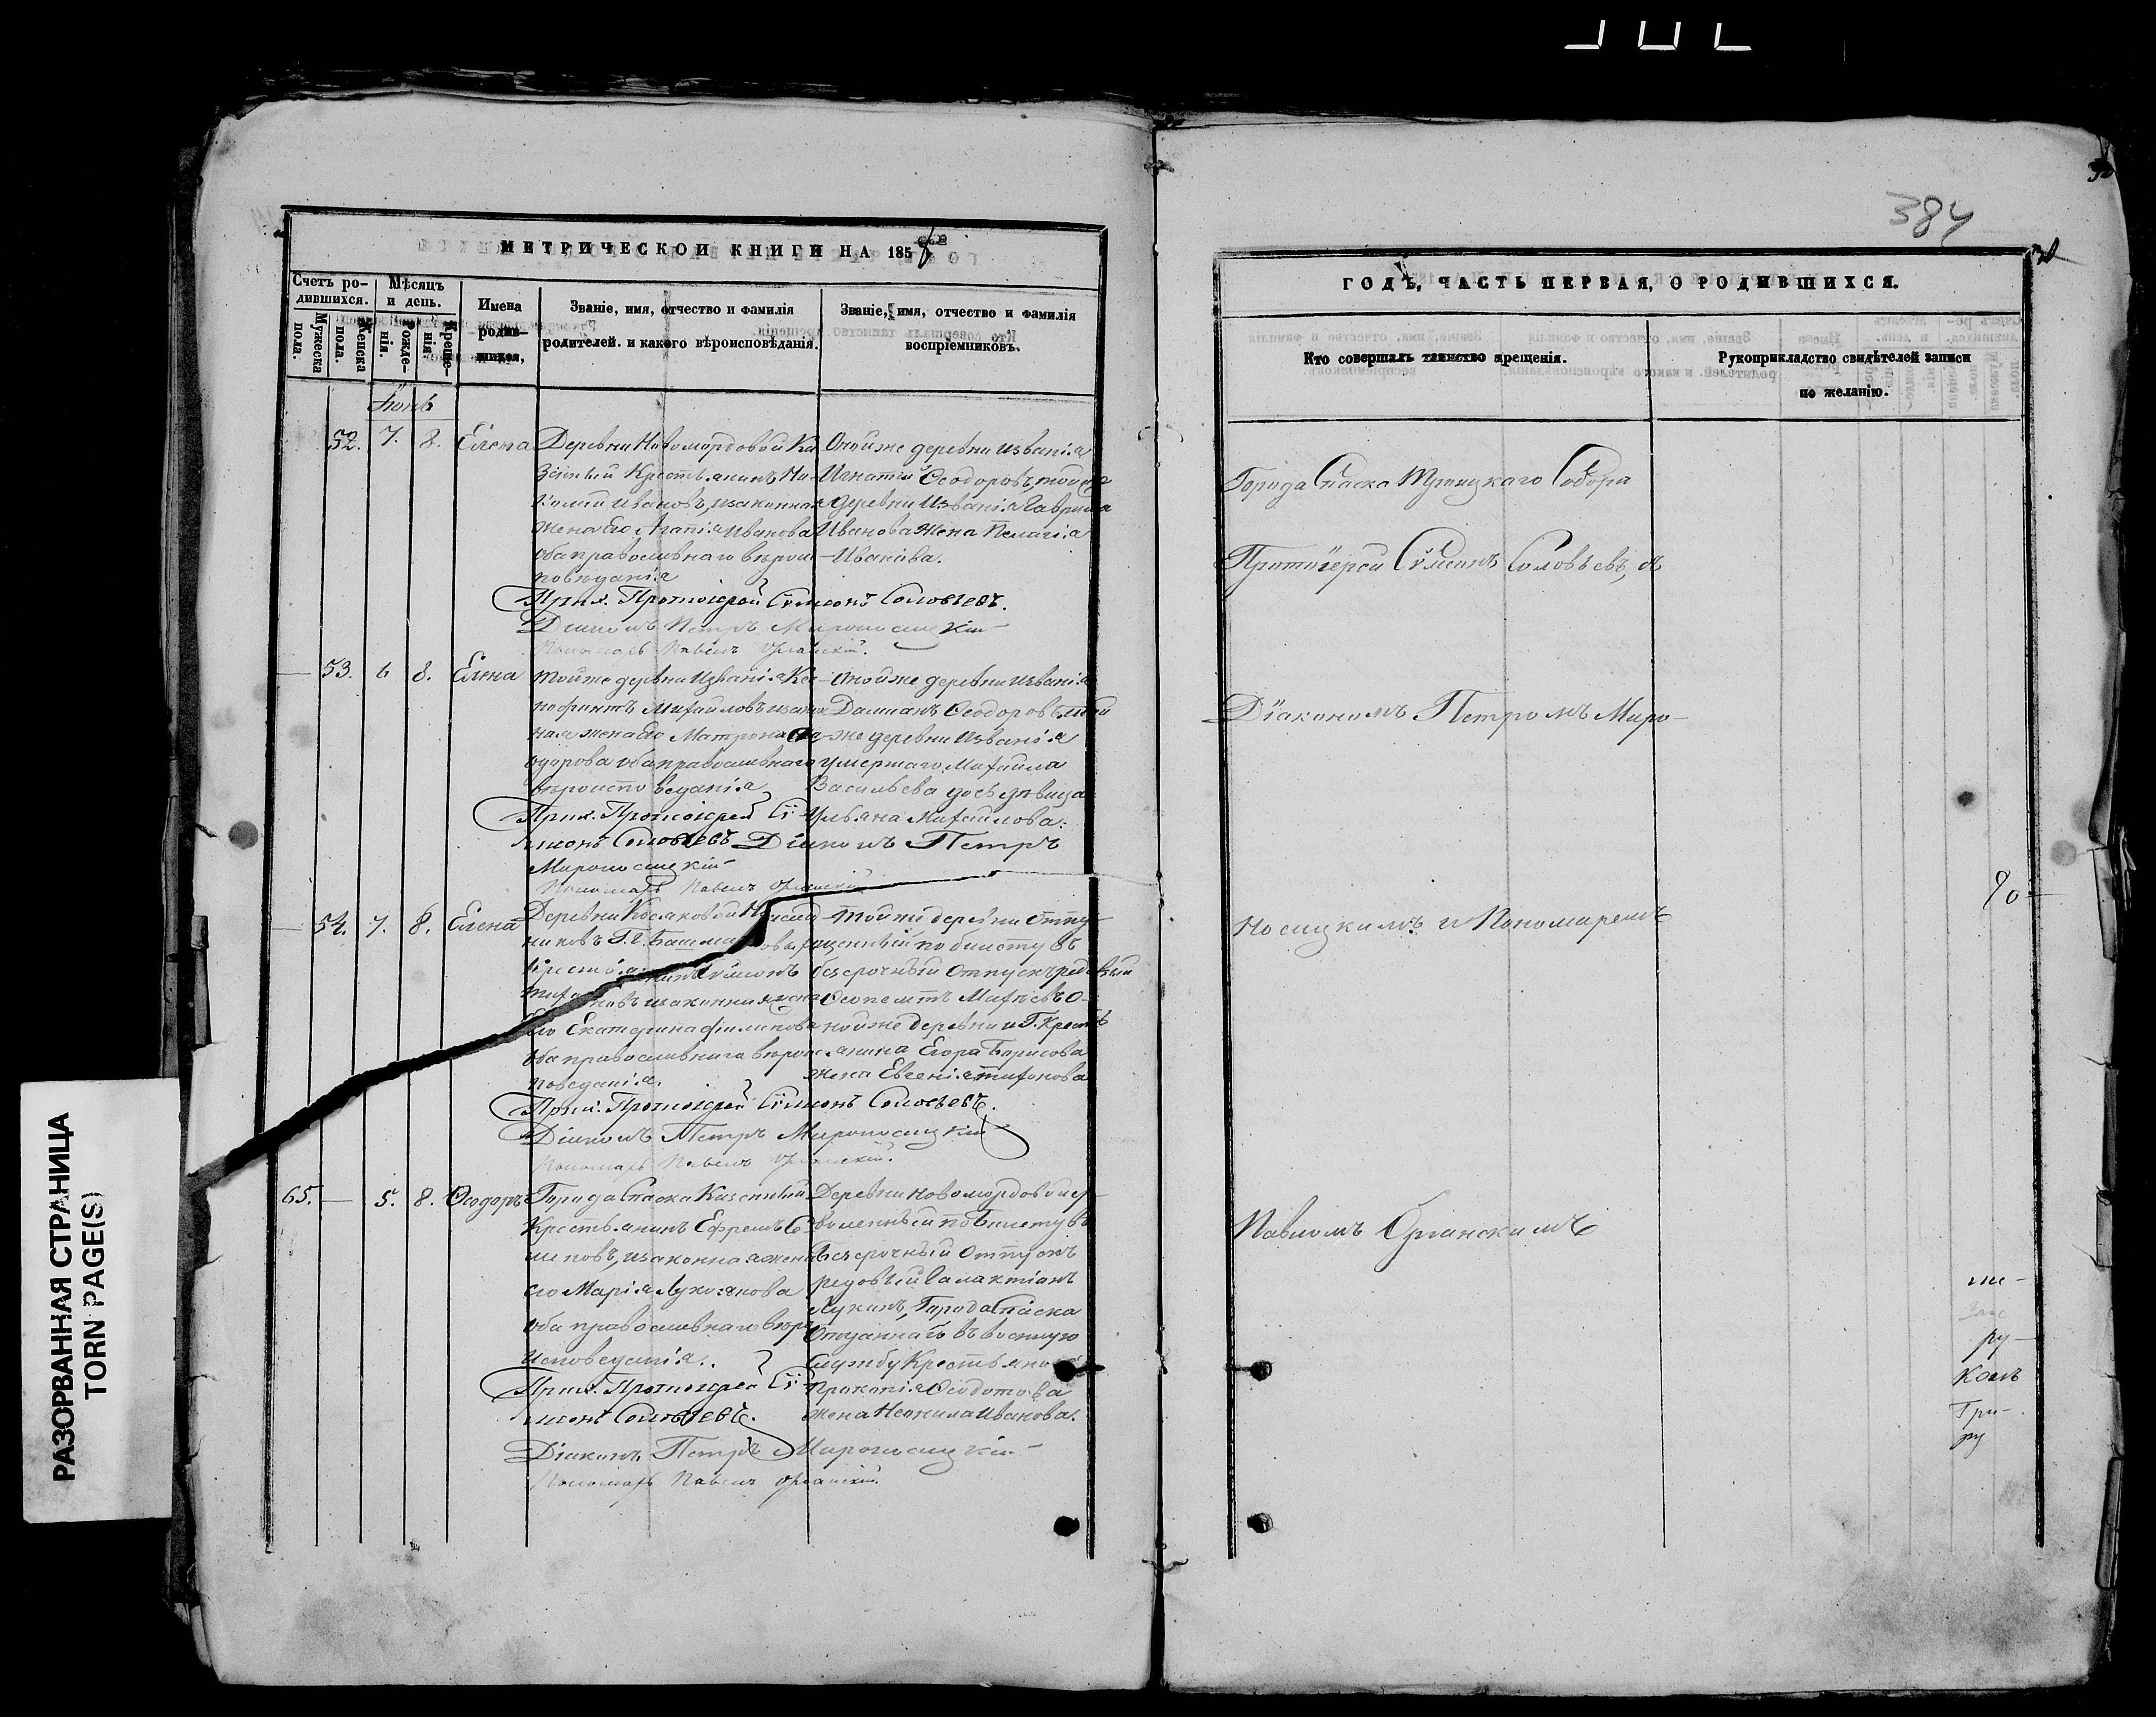 384
МЕТРИЧЕСКОЙ КНИГИ НА 185
Счетъ ро-
дившихся.
Мужеска
пола.
Женска
пола.
Мѣсяцъ
и день.
Рожде-
нія.
Креще-
нія.
Имена
родив-
шихся,
Званіе, имя, отчество и фамилія
родителей. и какого вѣроисповѣданія.
Званіе, имя, отчество и фамилія
воспріемниковъ.
52. 7. 8. Елена
Деревни Новомордовой Ка
зенный Крестьянинъ Ни-
Ивановъ, изаконная
жена Его Агапія Иванова
оба православнаго вѣрои
повѣданія
Оной же деревни изванія
Игнатій Ѳеодоровъ, той же
деревни Изванія Гаврила
Иванова Жена Пелагія
Иванова.
Прих. Протоіерей Сѵмеонъ Соловьевъ.
Діаконъ Петръ Мироносицкій
Пономарь Павелъ Орланскій.
53. 6 8. Елена
Той же деревни Изванія Кс-
нофонтъ Михайловъ изакон
ная жена Его Матрона Ѳе-
одорова оба православнаго
вѣроисповѣданія
Оной же деревни изванія
Даміанъ Ѳеодоровъ, той
же деревни Изванія
умершаго Михаила
Васильева дочь дѣвица
Ульяна Михайлова.
Прих. Протоіерей Сѵ-
меонъ Соловьевъ Діаконъ Петръ
Мироносицкій
Пономарь Павелъ Орланскій
54. 7. 8. Елена
Деревни Косяковой Наслѣд
никовъ Г. Г. Башма
Его Екатерина Филипова
оба православнаго вѣроис
повѣданія.
Той же деревни Отпу-
щенный по билету въ
безсрочный отпускъ рядовый
Ѳеопемптъ Маѳеевъ о-
ной же деревни и Г. Кресть
янина Егора Борисова
жена Евгенія Тихонова
Прих. Протоіерей Сѵмеонъ Соловьевъ.
Діаконъ Петръ Мироносицкій
Пономарь Павелъ Орланскій.
65. 5. 8. Ѳеодоръ
Города Спаска Казенный
Крестьянинъ Ефремъ Се-
меновъ, изаконная жена
его Марія Лукоянова
оба православнаго вѣро
исповѣданія.
Деревни Новомордовой у-
воленный по Билету въ
Безсрочный Отпускъ
редовый Галактіонъ
Лукинъ, Города Спаска
Отданнаго въ военную
Службу Крестьянина
Прокопія Ѳеодотова
жена Неонила Иванова.
Прих. Протоіерей Сѵ-
меонъ Соловьевъ.
Діаконъ Петръ Мироносицкій
Пономарь Павелъ Орланскій.
ГОДЪ, ЧАСТЬ ПЕРВАЯ, О РОДИВШИХСЯ.
Кто совершалъ таинство крещенія.
Рукоприкладство свидѣтелей записи
по желанію.
Города Спаска Троицкаго Собора
Протоіерей Сѵмеонъ Соловьевъ, съ
Діакономъ Петромъ Миро-
носицкимъ и Пономаремъ
Павломъ Орланскимъ
ру-
РАЗОРВАННАЯ СТРАНИЦА
TORN PAGE(S)